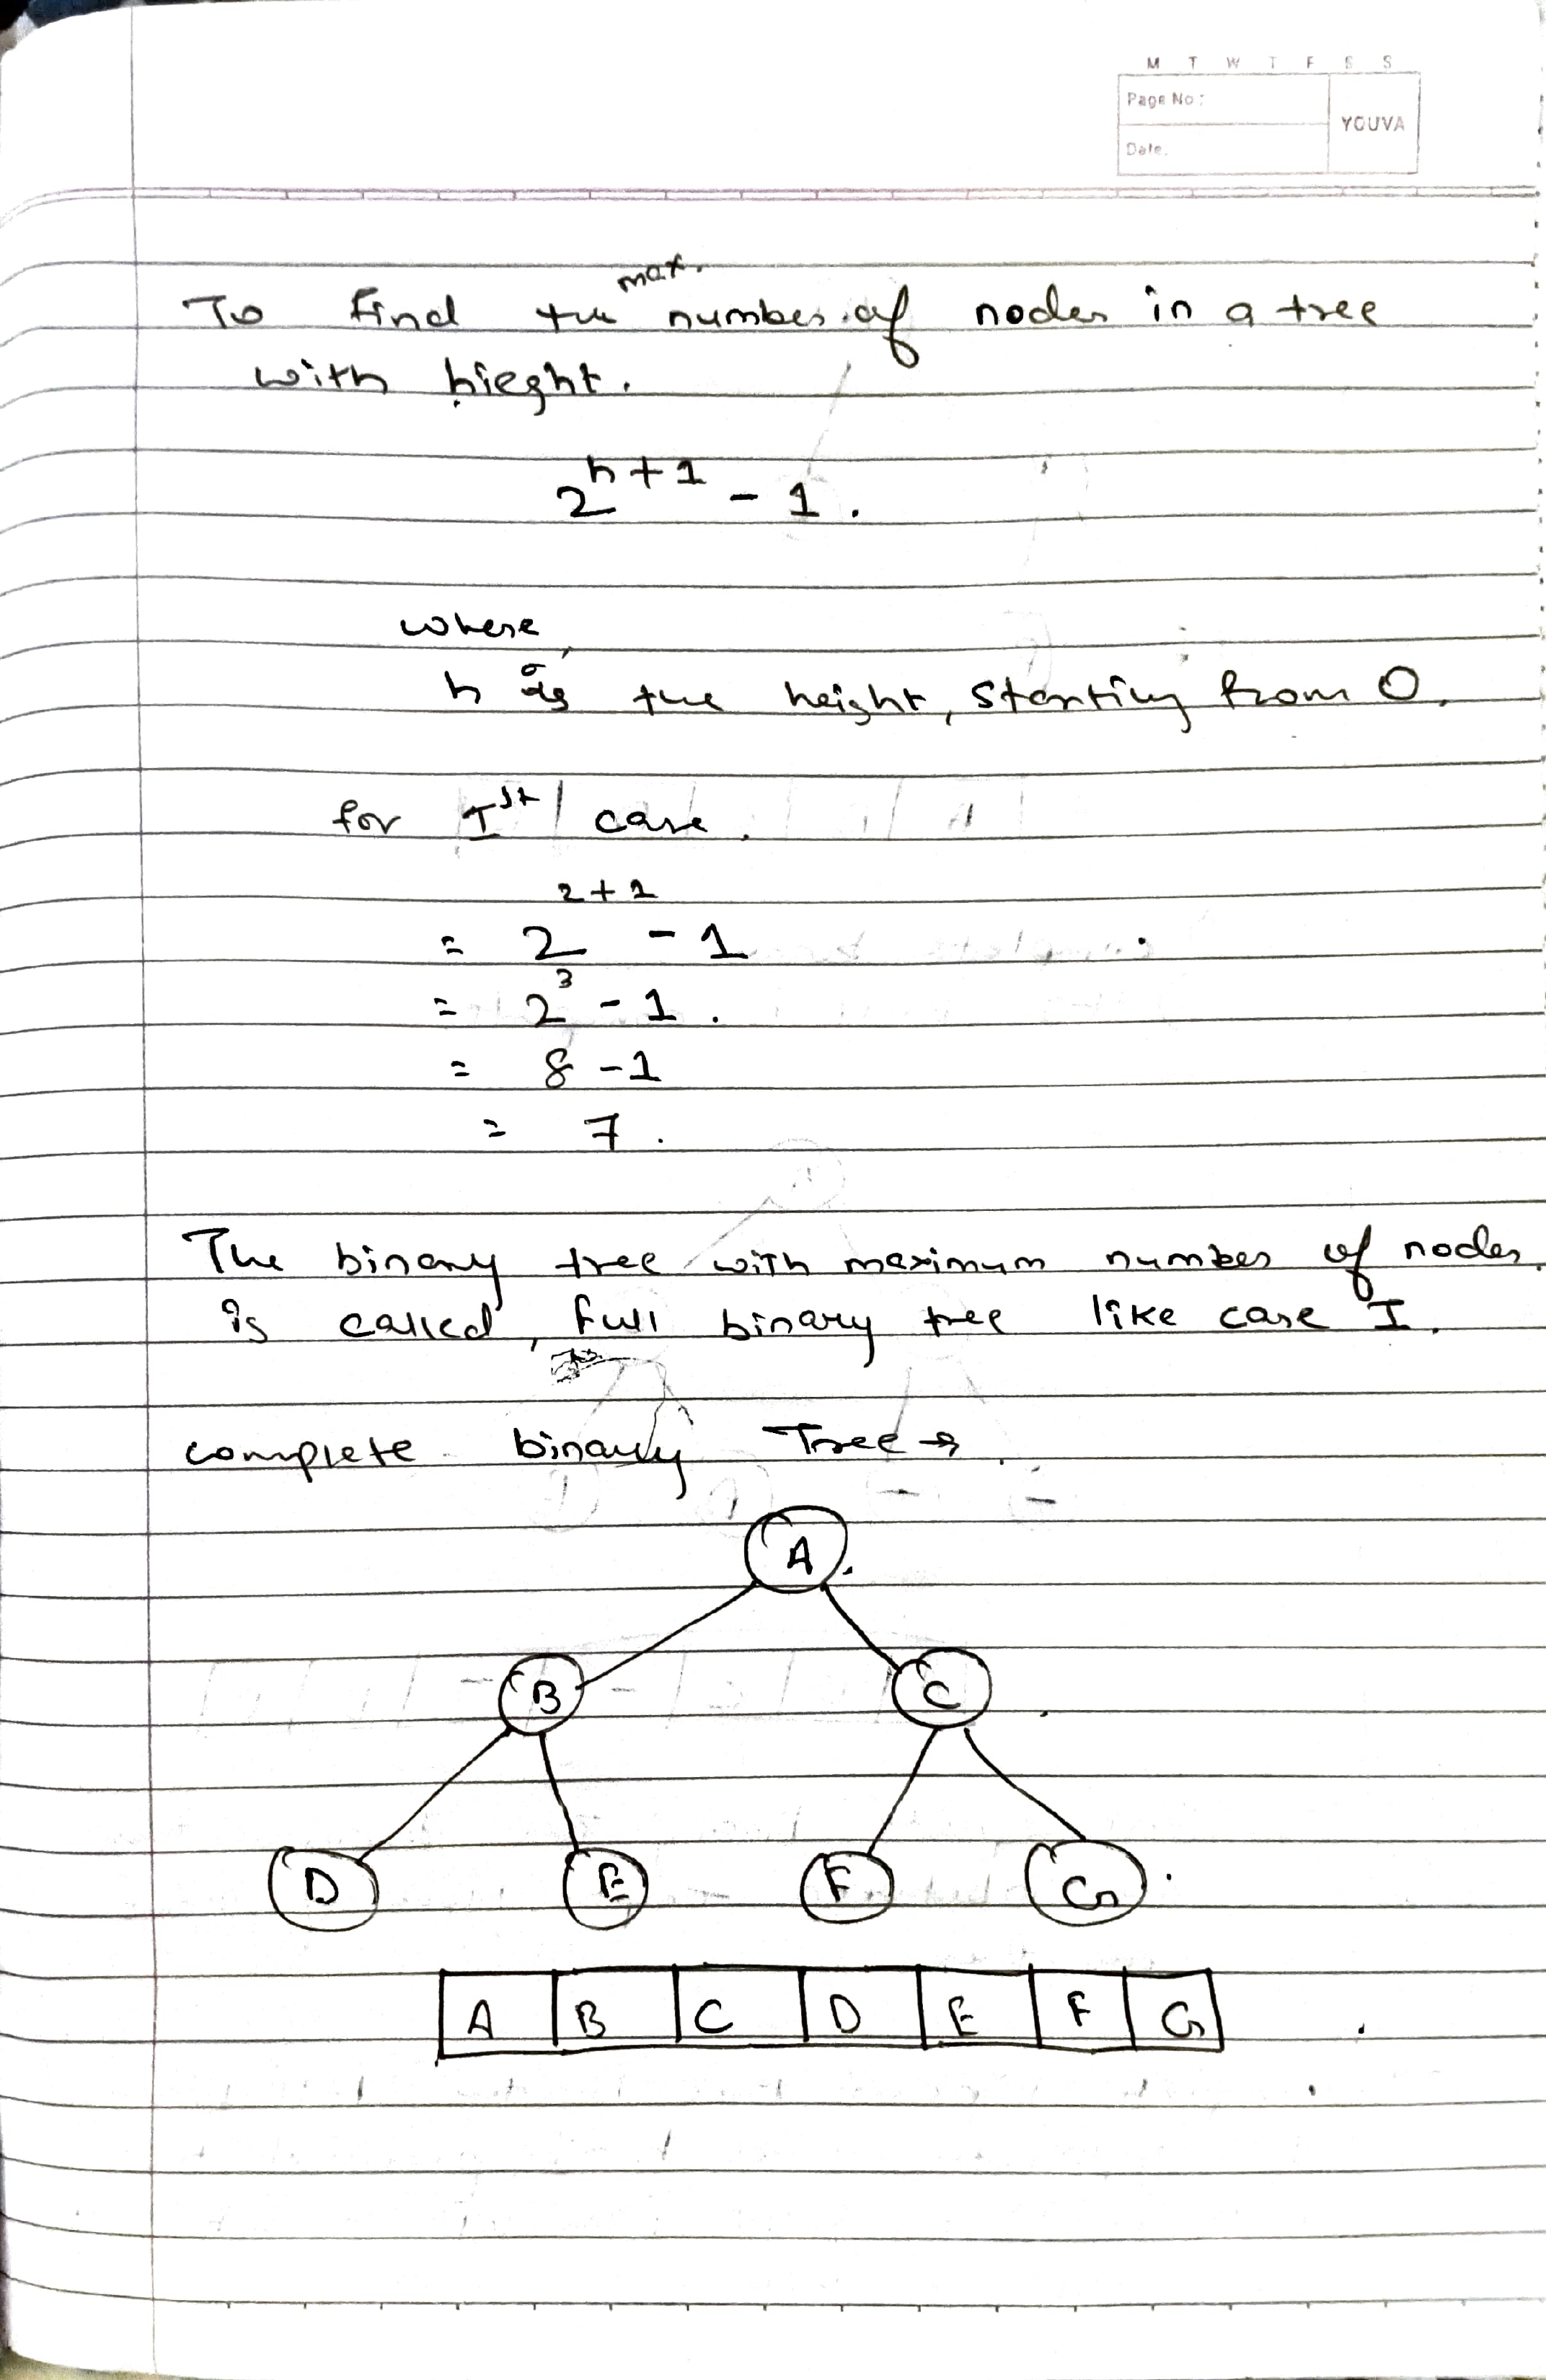 M T W T F S S
Page No :
YOUVA
Date.
max.
To find the number of nodes in a tree
with hieght.
2^h+1 - 1.
where,
h is the height, starting from 0.
for Ist case.
= 2^2+1 - 1
= 2^3 - 1.
= 8 - 1
= 7.
The binary tree with maximum number of nodes
is called, full binary tree like case I.
complete binary Tree →
A
B C
D E F G
A B C D E F G